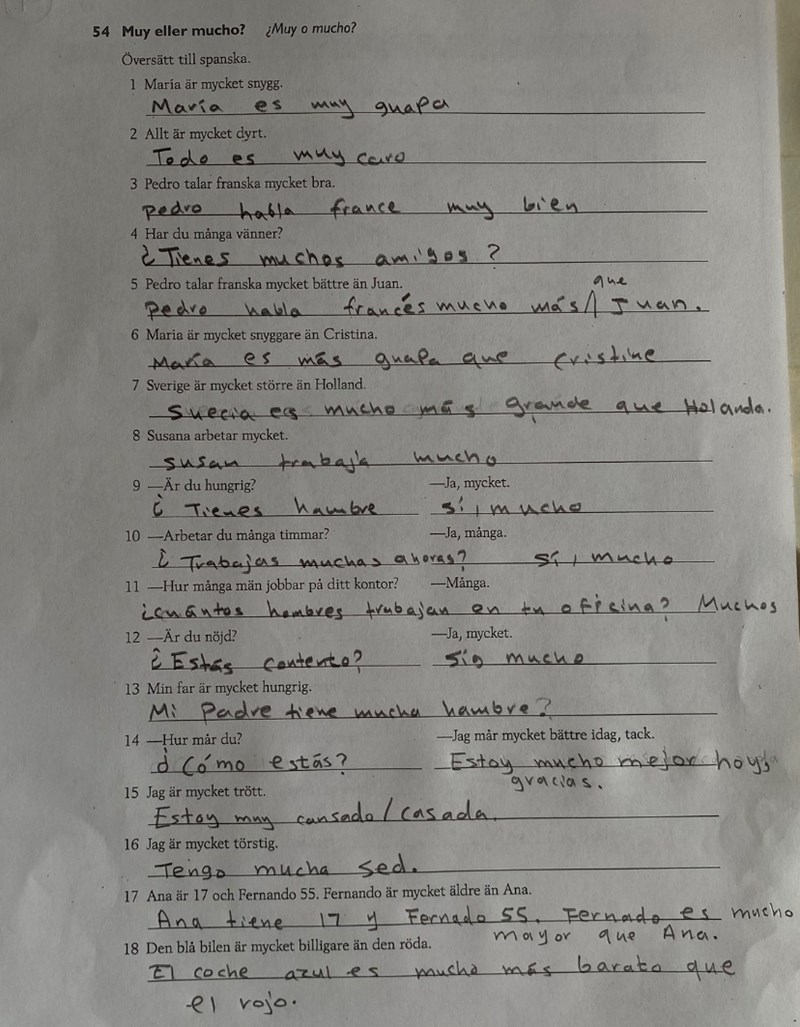 54 Muy eller mucho? ¿Muy o mucho?
Översätt till spanska.
1 María är mycket snygg.
María es muy guapa
2 Allt är mycket dyrt.
Todo es muy caro
3 Pedro talar franska mycket bra.
pedro habla france muy bien
4 Har du många vänner?
¿Tienes muchos amigos?
5 Pedro talar franska mycket bättre än Juan.
que
Pedro habla francés mucho más / Juan.
6 Maria är mycket snyggare än Cristina.
María es más guapa que cristine
7 Sverige är mycket större än Holland.
Suecia es mucho más grande que Holanda.
8 Susana arbetar mycket.
susan trabaja mucho
9 —Är du hungrig? —Ja, mycket.
¿ Tienes hambre sí, mucho
10 —Arbetar du många timmar? —Ja, många.
¿ Trabajas muchas ahoras? sí, mucho
11 —Hur många män jobbar på ditt kontor? —Många.
¿cuántos hombres trabajan en tu oficina? Muchos
12 —Är du nöjd? —Ja, mycket.
¿ Estás contento? mucho
13 Min far är mycket hungrig.
Mi Padre tiene mucha hambre?
14 —Hur mår du? —Jag mår mycket bättre idag, tack.
¿ Cómo estás? Estoy mucho mejor hoy,
gracias.
15 Jag är mycket trött.
Estoy muy cansado / casada.
16 Jag är mycket törstig.
Tengo mucha sed.
17 Ana är 17 och Fernando 55. Fernando är mycket äldre än Ana.
Ana tiene 17 y Fernado 55. Fernado es mucho
mayor que Ana.
18 Den blå bilen är mycket billigare än den röda.
El coche azul es mucho más barato que
el rojo.